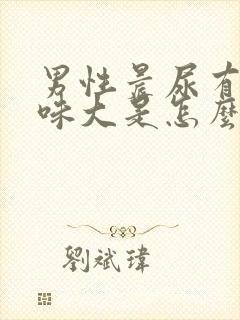 男性晨尿有
味大是怎麼
劉斌瑋